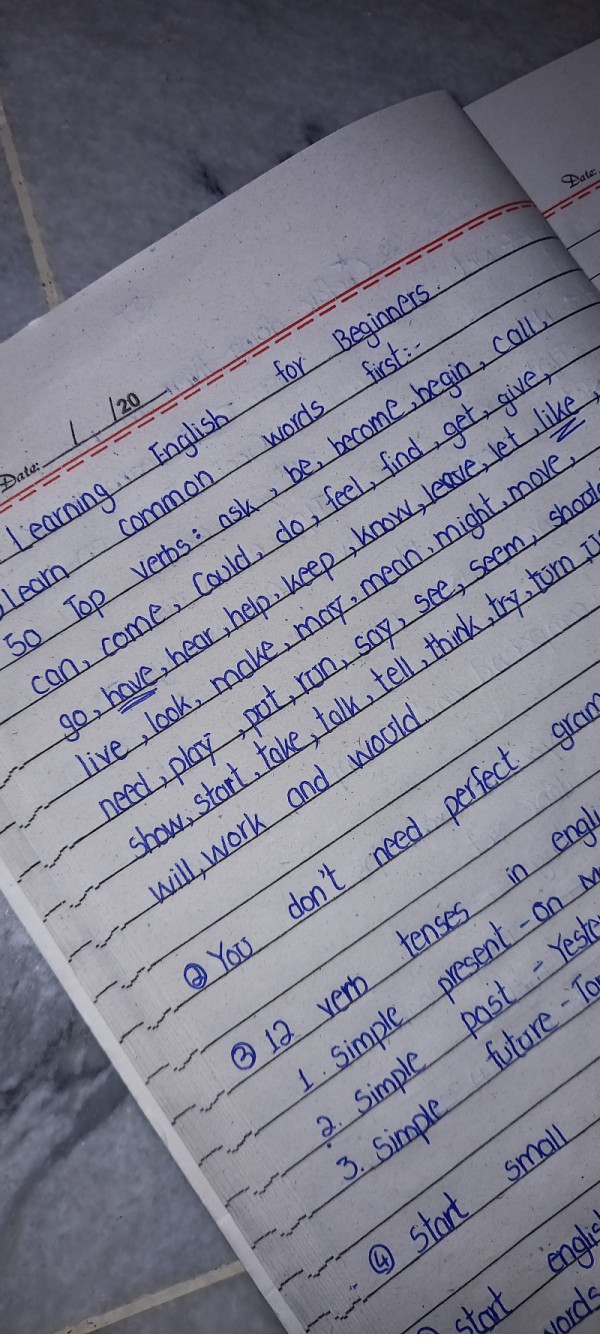 Date: / /20
Date:
Learning English for Beginners.
Learn common words first:-
50 Top verbs: ask, be, become, begin, call,
can, come, could, do, feel, find, get, give,
go, have, hear, help, keep, know, leave, let, like,
live, look, make, may, mean, might, move,
need, play, put, run, say, see, seem,
show, start, take, talk, tell, think, try, turn,
will, work and would
② You don't need perfect
③ 12 verb tenses in
1. Simple present - On
2. Simple past -
3. Simple future -
④ Start small
start